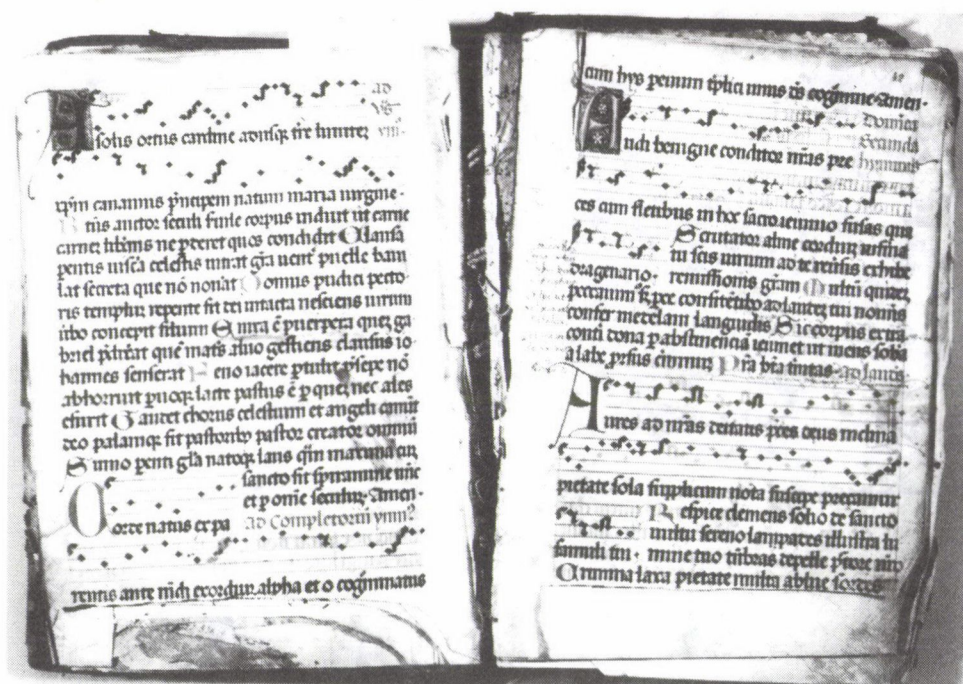 ad
A solis ortus cardine adusq; tre limitez
xpm canamus pncipem natum maria uirgine.
B tus auctor seculi seruile corpus induit ut carne
carnez libens ne pderet quos condidit Clausa
pentis uiscera celestis intrat gra uent puelle baiu
lat secreta que no nouat Domus pudici pecto
ris templuz repente fit dei intacta nesciens uirum
ubo concepit filium Enixa e puerpera quez ga
briel pdixerat que matis aluo gestiens clausus io
hannes senserat Feno iacere ptulit psepe no
abhorruit puoq; lacte pastus e p quez nec ales
esurit Gaudet chorus celestium et angeli canunt
deo palamq; fit pastorib; pastor creator omniu
Summo penti gla natoq; laus quam maxima cuz
sancto sit spiramine nunc
et p omne seculuz. Amen.
Corde natus ex pa ad Completoriu ymn?
rentis ante mudi exordiuz alpha et o cognominatus
cum hys perenniter tplici unus cognomine Amen.
Domica
Secunda
Audi benigne conditor nras pre hymnus
ces cum fletibus in hoc sacro ieiunio fusas qua
Scrutator alme cordiuz infirma
tu scis uirium ad te reuersis exhibe
dragenario. remissionis gram Multu quidez
peccauim? sz pce confitetibo ad laudez tui nominis
confer medelam languidis Sic corpus extra
conteri dona p abstinenciaz ieiunet ut mens sobria
a labe prsus criminuz Pra bta trinitas. ad laudes
Aures ad nras deitatis pces deus inclina
pietate sola supplicum uota suscipe precamur
Respice clemens solio de sancto
uultu sereno lampades illustra lu
famuli tui. mine tuo tenebras depelle pectore nro
Crimina laxa pietate multa ablue sordes